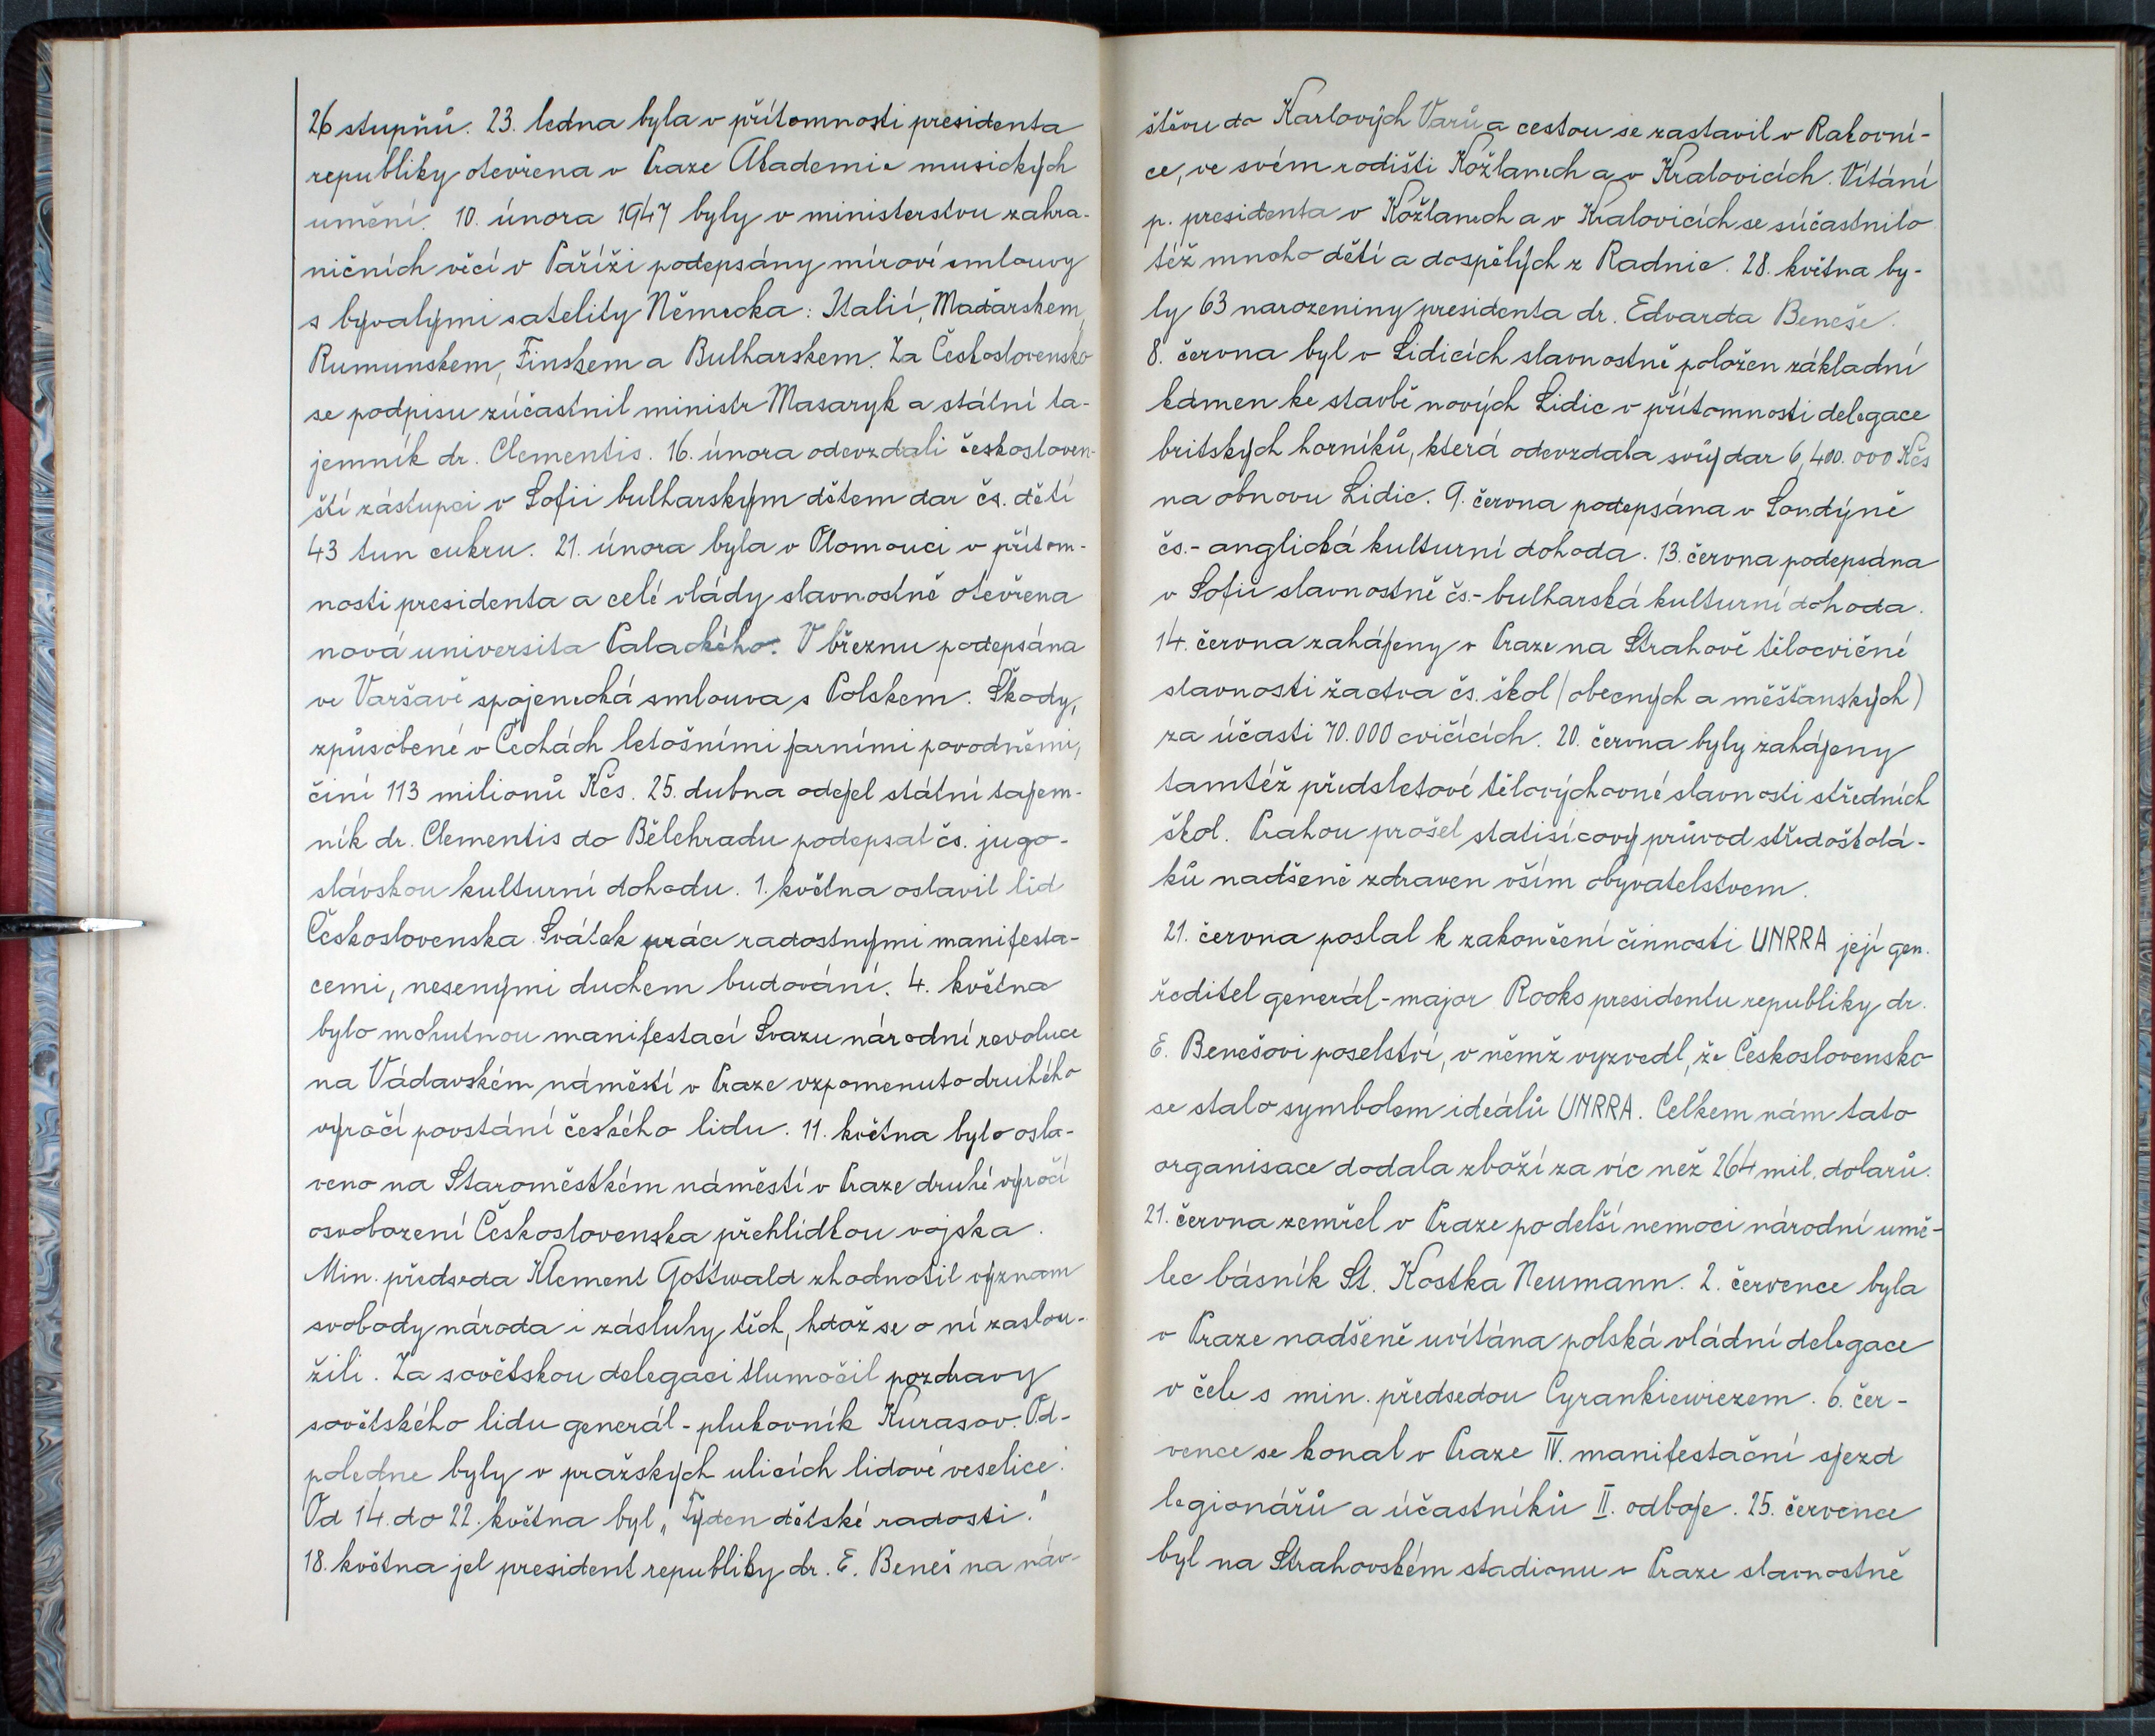 26 stupňů. 23. ledna byla v přítomnosti presidenta
republiky otevřena v Praze Akademie musických
umění. 10. února 1947 byly v ministerstvu zahra-
ničních věcí v Paříži podepsány mírové smlouvy
s bývalými satelity Německa: Italií, Maďarskem,
Rumunskem, Finskem a Bulharskem. Za Československo
se podpisu zúčastnil ministr Masaryk a státní ta-
jemník dr. Clementis. 16. února odevzdali českosloven-
ští zástupci v Sofii bulharským dětem dar čs. dětí
43 tun cukru. 21. února byla v Olomouci v přítom-
nosti presidenta a celé vlády slavnostně otevřena
nová universita Palackého. V březnu podepsána
ve Varšavě spojenecká smlouva s Polskem. Škody,
způsobené v Čechách letošními jarními povodněmi,
činí 113 milionů Kčs. 25. dubna odejel státní tajem-
ník dr. Clementis do Bělehradu podepsat čs. jugo-
slávskou kulturní dohodu. 1. května oslavil lid
Československa Svátek práce radostnými manifesta-
cemi, nesenými duchem budování. 4. května
bylo mohutnou manifestací Svazu národní revoluce
na Václavském náměstí v Praze vzpomenuto druhého
výročí povstání českého lidu. 11. května bylo osla-
veno na Staroměstkém náměstí v Praze druhé výročí
osvobození Československa přehlídkou vojska.
Min. předseda Klement Gottwald zhodnotil význam
svobody národa i zásluhy těch, kdož se o ni zaslou-
žili. Za sovětskou delegaci tlumočil pozdravy
sovětského lidu generál-plukovník Kurasov. Od-
poledne byly v pražských ulicích lidové veselice.
Od 14. do 22. května byl „Týden dětské radosti."
18. května jel president republiky dr. E. Beneš na náv-
štěvu do Karlových Varů a cestou se zastavil v Rakovní-
ce, ve svém rodišti Kožlanech a v Kralovicích. Vítání
p. presidenta v Kožlanech a v Kralovicích se súčastnilo
též mnoho dětí a dospělých z Radnic. 28. května by-
ly 63 narozeniny presidenta dr. Edvarda Beneše.
8. června byl v Lidicích slavnostně položen základní
kámen ke stavbě nových Lidic v přítomnosti delegace
britských horníků, která odevzdala svůj dar 6,400.000 Kčs
na obnovu Lidic. 9. června podepsána v Londýně
čs.-anglická kulturní dohoda. 13. června podepsána
v Sofii slavnostně čs.-bulharská kulturní dohoda.
14. června zahájeny v Praze na Strahově tělocvičné
slavnosti žactva čs. škol (obecných a měšťanských)
za účasti 70.000 cvičících. 20. června byly zahájeny
tamtéž předsletové tělovýchovné slavnosti středních
škol. Prahou prošel statisícový průvod středoškolá-
ků nadšeně zdraven vším obyvatelstvem.
21. června poslal k zakončení činnosti UNRRA její gen.
ředitel generál-major Rooks presidentu republiky dr.
E. Benešovi poselství, v němž vyzvedl, že Československo
se stalo symbolem ideálů UNRRA. Celkem nám tato
organisace dodala zboží za víc než 264 mil. dolarů.
21. června zemřel v Praze po delší nemoci národní umě-
lec básník St. Kostka Neumann. 2. července byla
v Praze nadšeně uvítána polská vládní delegace
v čele s min. předsedou Cyrankiewiezem. 6. čer-
vence se konal v Praze IV. manifestační sjezd
legionářů a účastníků II. odboje. 25. července
byl na Strahovském stadionu v Praze slavnostně